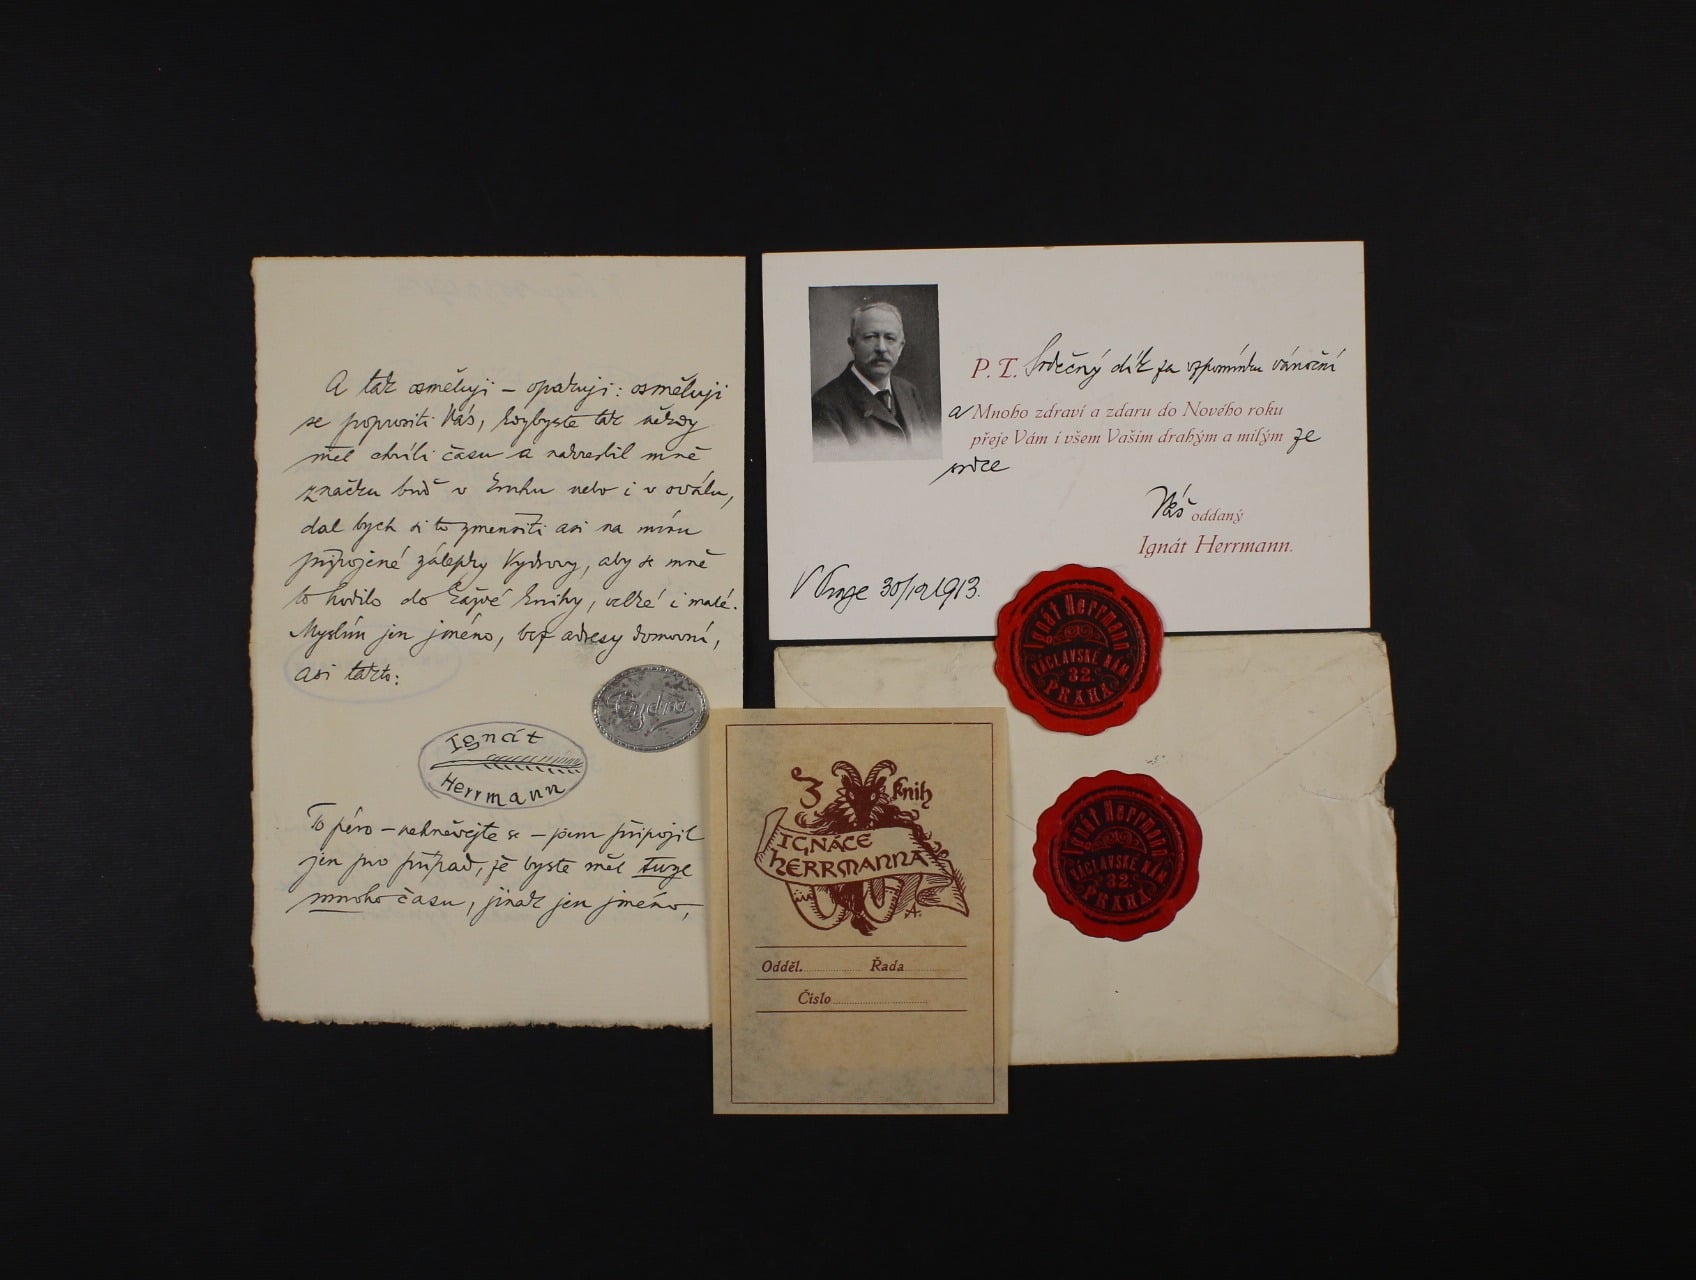 A tak osměluji – opakuji: osměluji
se poprositi Vás, kdybyste tak někdy
měl chvíli času a nakreslil mně
značku buď v kruhu nebo i v oválu,
dal bych si to zmenšiti asi na míru
připojené zálepky Vydrovy, aby se mně
to hodilo do každé knihy, velké i malé.
Myslím jen jméno, bez adresy domovní,
asi takto:
Vydra
Ignát
Herrmann
To péro – nehněvejte se – jsem připojil
jen pro případ, že byste měl tuze
mnoho času, jinak jen jméno,
P. T. Srdečný dík za vzpomínku vánoční
a Mnoho zdraví a zdaru do Nového roku
přeje Vám i všem Vašim drahým a milým ze
srdce
Váš oddaný
Ignát Herrmann.
V Praze 30/12 1913.
Ignát Herrmann
VÁCLAVSKÉ NÁM.
32.
PRAHA
Ignát Herrmann
VÁCLAVSKÉ NÁM.
32.
PRAHA
Z knih
IGNÁCE
HERRMANNA
A.
Odděl. Řada
Číslo